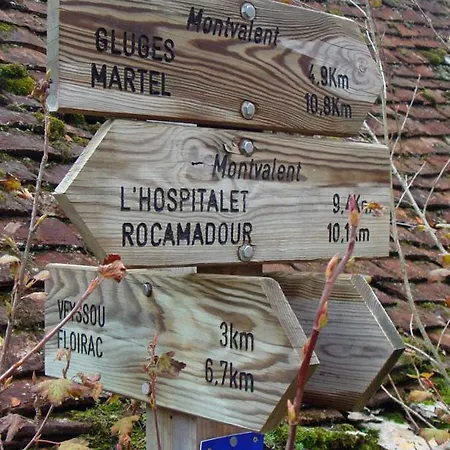 Montvalent
GLUGES 4,9Km
MARTEL 10,8Km
Montvalent
L'HOSPITALET 9,4Km
ROCAMADOUR 10,1Km
VEYSSOU 3km
FLOIRAC 6,7km